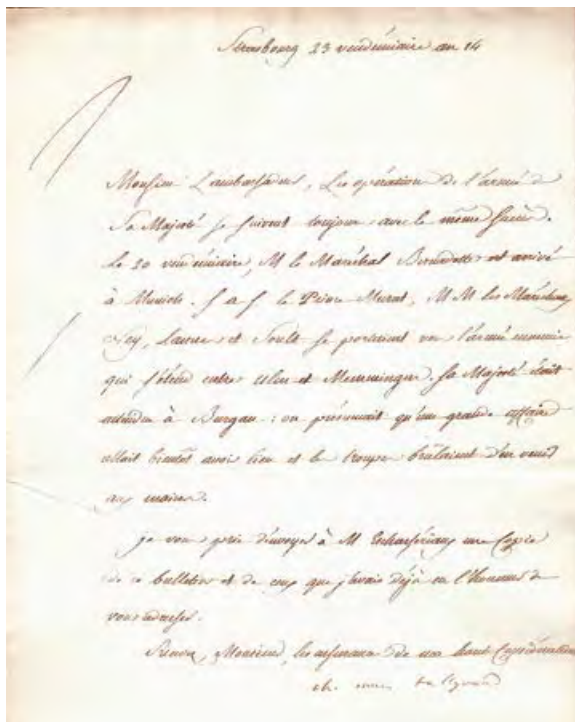 Strasbourg 23 vendémiaire an 14
Monsieur L'ambassadeur, Les opérations de l'armée de
Sa Majesté se suivent toujours avec le même succès.
Le 20 vendémiaire, M le Maréchal Bernadotte est arrivé
à Munich. S a S le Prince Murat, M M les Maréchaux
Ney, Lannes et Soult se portaient vers l'armée ennemie
qui s'étend entre Ulm et Memmingen. Sa Majesté était
attendue à Burgau : on présumait qu'une grande affaire
allait bientôt avoir lieu et les troupes brûlaient d'en venir
aux mains.
je vous prie d'envoyer à M Eschassériaux une Copie
de ce bulletin et de ceux que j'avais déjà eu l'honneur de
vous adresser.
Recevez, Monsieur, les assurances de ma haute Considération
ch. mau. talleyrand